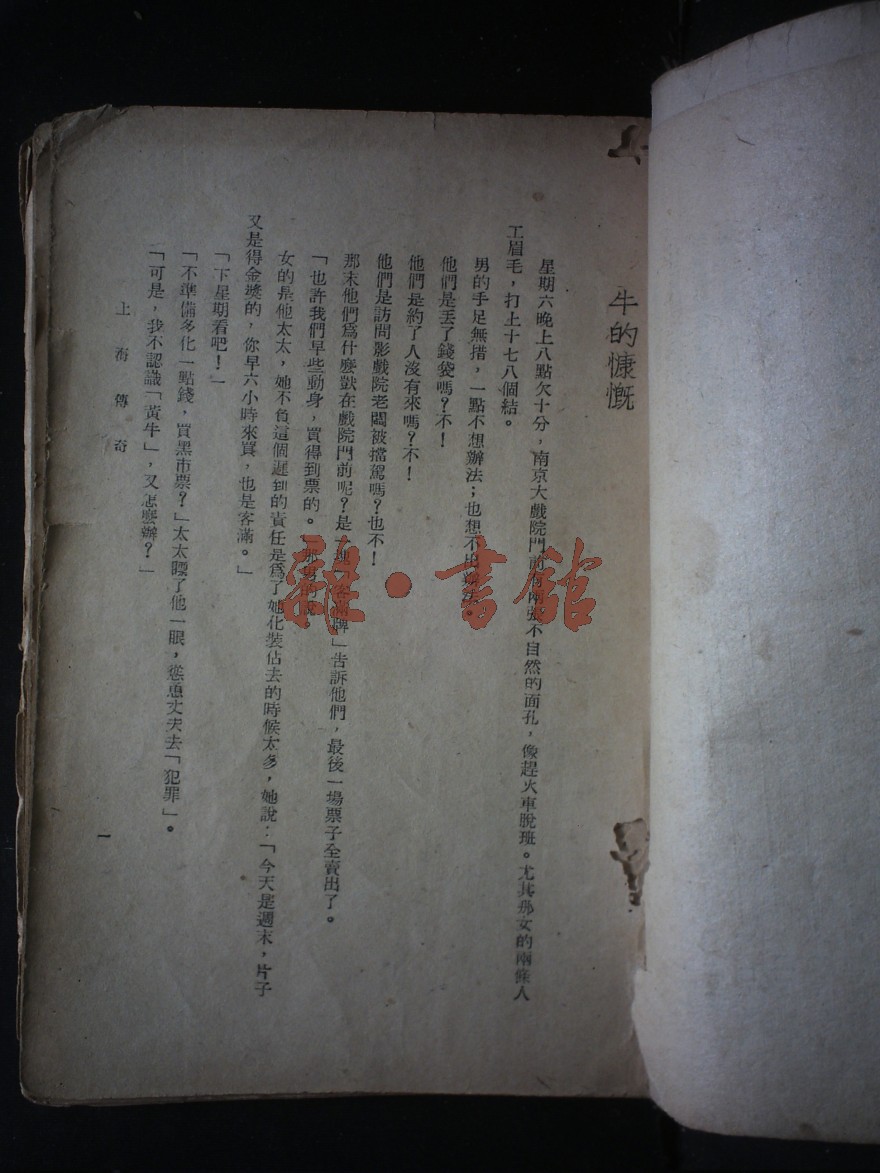 牛的慷慨
星期六晚上八點欠十分，南京大戲院門前有兩張不自然的面孔，像趕火車脫班。尤其那女的兩條人
工眉毛，打上十七八個結。
男的手足無措，一點不想辦法；也想不出辦法。
他們是丟了錢袋嗎？不！
他們是約了人沒有來嗎？不！
他們是訪問影戲院老闆被擋駕嗎？也不！
那末他們爲什麼獃在戲院門前呢？是一塊「客滿牌」告訴他們，最後一場票子全賣出了。
「也許我們早些動身，買得到票的。」那男的說。
女的是他太太，她不負這個遲到的責任是爲了她化裝佔去的時候太多，她說：「今天是週末，片子
又是得金獎的，你早六小時來買，也是客滿。」
「下星期看吧！」
「不準備多化一點錢，買黑市票？」太太瞟了他一眼，慫恿丈夫去「犯罪」。
「可是，我不認識「黃牛」，又怎麼辦？」
上海傳奇
一
雜·書館